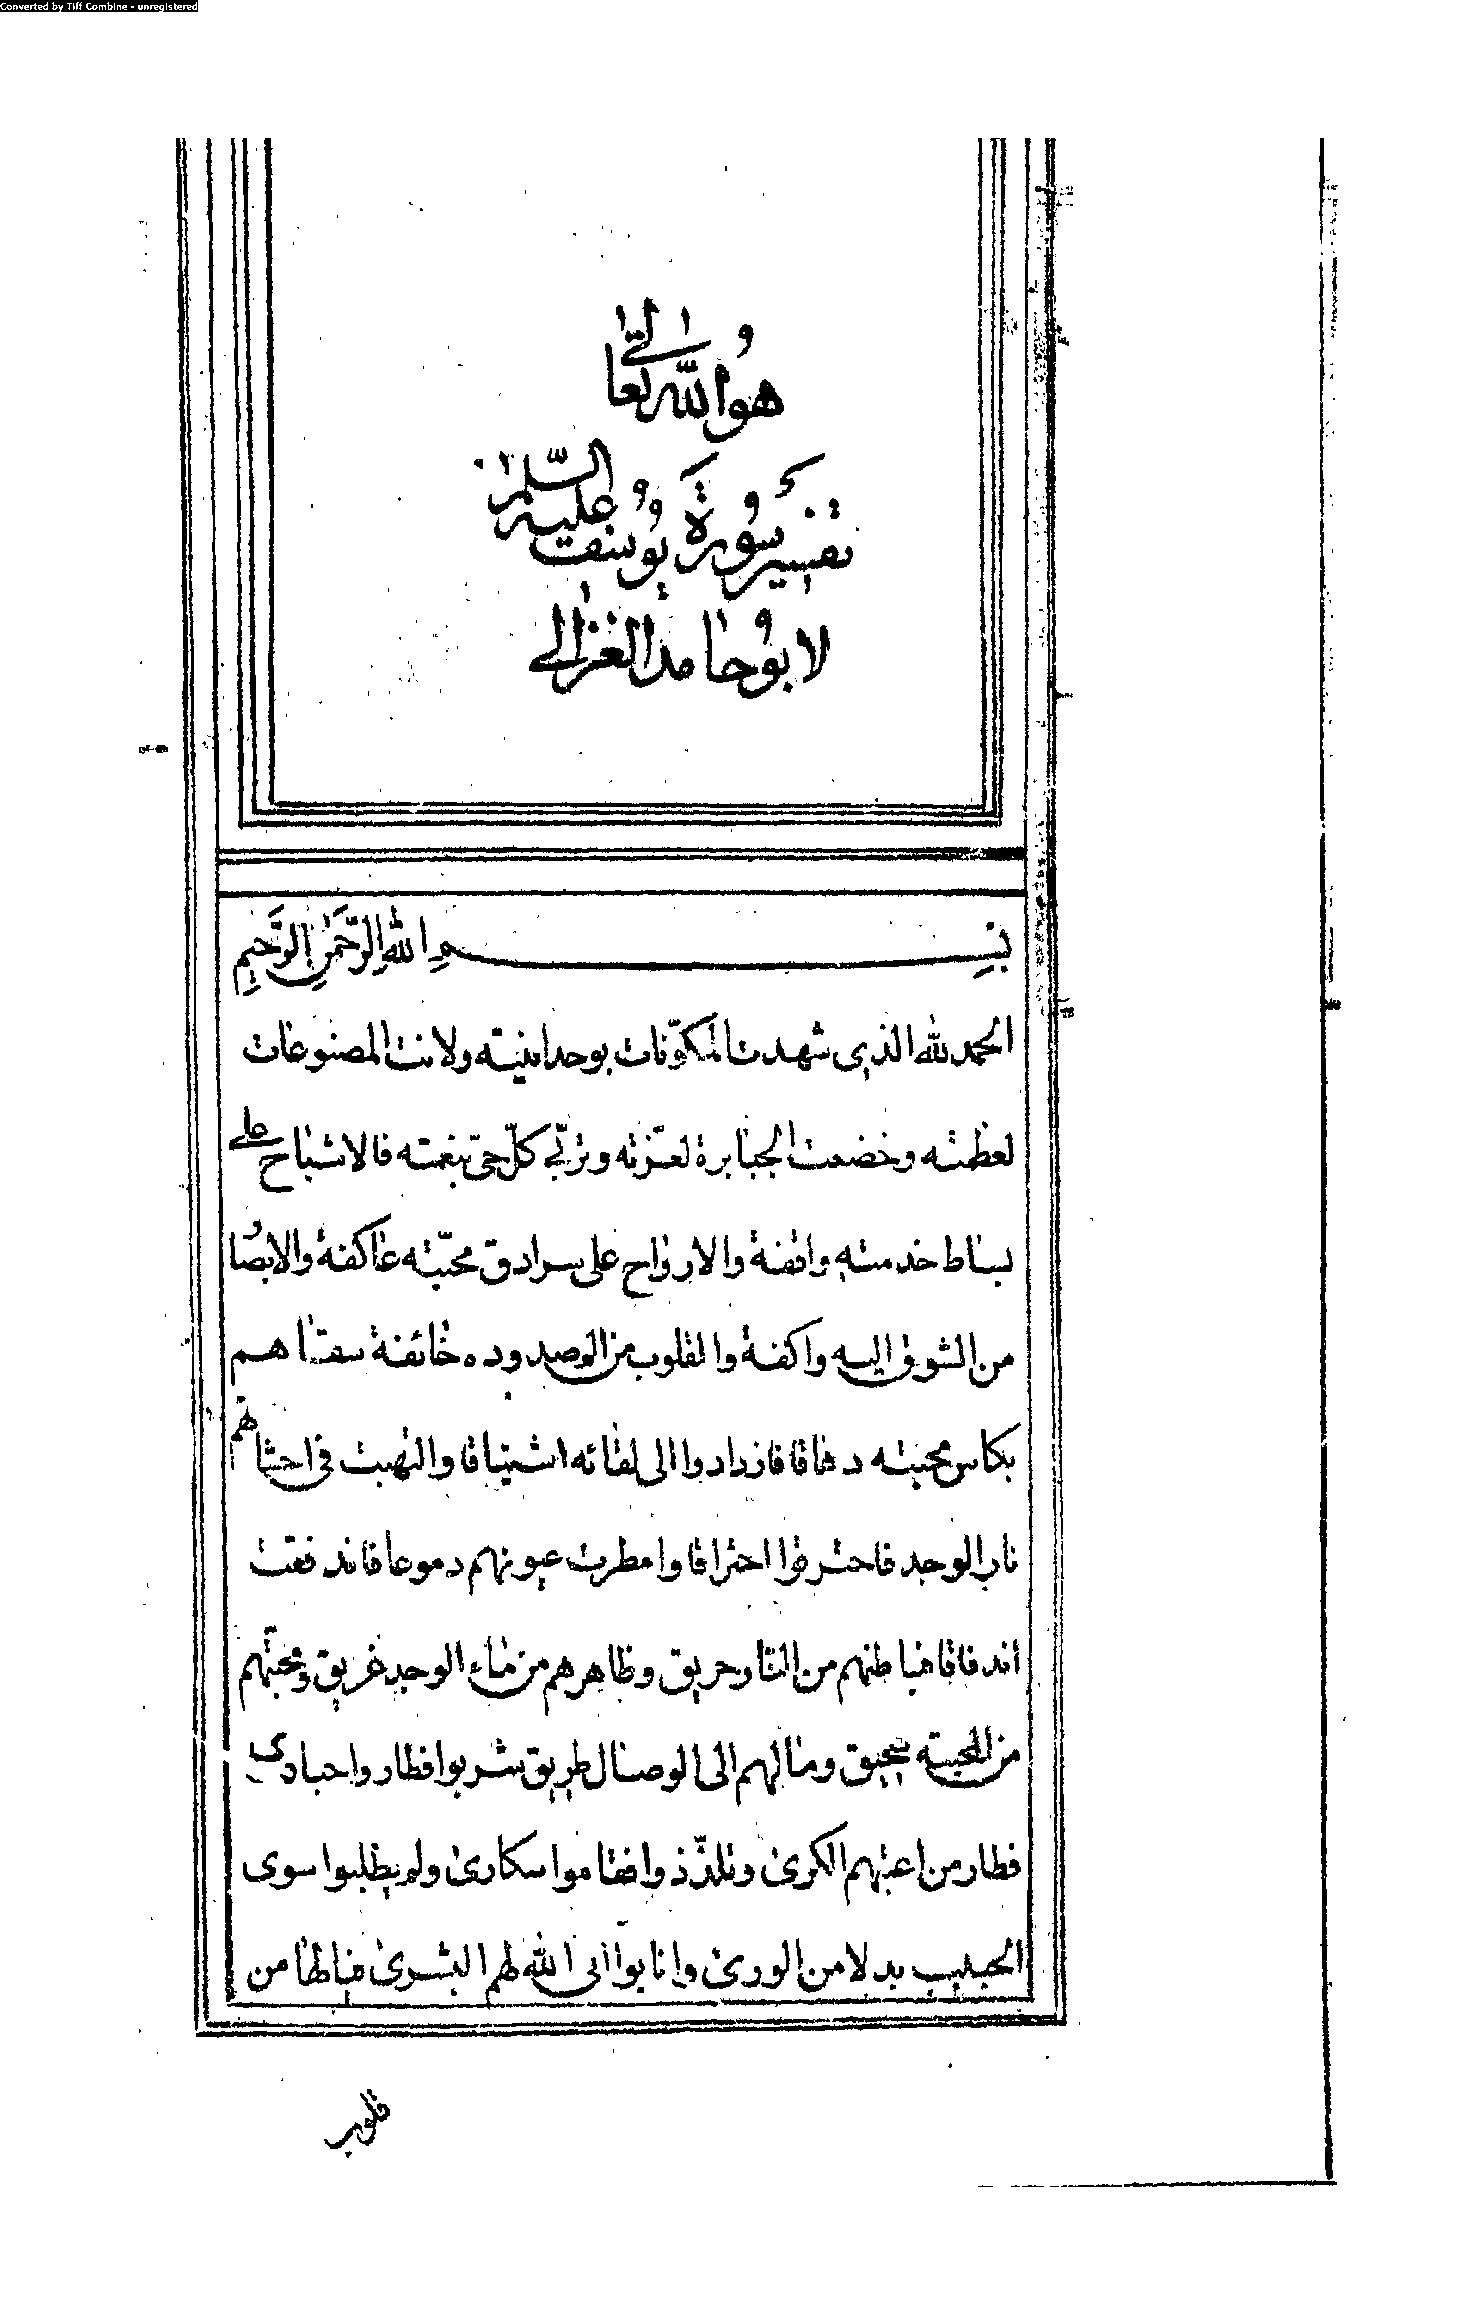 Converted by Tiff Combine - unregistered
هو الله تعالى
تفسير سورة يوسف عليه السلم
لابو حامد الغزالي
بسم الله الرحمن الرحيم
الحمد لله الذي شهدت المكوّنات بوحدانيته ولانت المصنوعات
لعظمته وخضعت الجبابرة لعزّته وتربّى كلّ حىّ بنعمته فالاشباح على
بساط خدمته واقفة والارواح على سرادق محبّته عاكفة والابصار
من الشوق اليه واكفة والقلوب من الوصدوده خائفة سقاهم
بكاس محبته دهاقا فازدادوا الى لقائه اشتياقا والتهبت في احشائهم
نار الوجد فاحترقوا احتراقا وامطرت عيونهم دموعا فاندفقت
اندفاقا فباطنهم من النار حريق وظاهرهم من ماء الوجد غريق ومحبّتهم
من المحبته سحيق ومالهم الى الوصال طريق شربوا فطاروا حيادى
فطار من اعينهم الكرى وتلذّذوا فقاموا سكارى ولم يطلبوا سوى
الحبيب بدلا من الورى وانابوا الى الله لهم البشرى فيالها من
قلوب